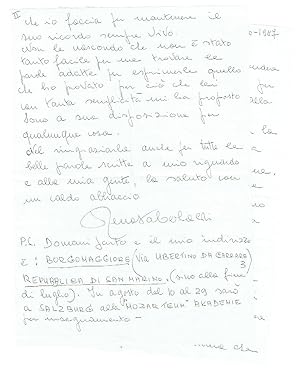 II
che io faccia per mantenere il
suo ricordo sempre vivo.
Non le nascondo che non è stato
tanto facile per me trovare le
parole adatte per esprimerle quello
che ho provato per ciò che lei
con tanta semplicità mi ha proposto
Sono a sua disposizione per
qualunque cosa.
Nel ringraziarla anche per tutte le
belle parole scritte a mio riguardo
e alla mia gente, la saluto con
un caldo abbraccio
P.S. Domani parto e il mio indirizzo
è: BORGOMAGGIORE (Via UBERTINO DA CARRARA
3)
REPUBBLICA DI SAN MARINO, (sino alla fine
di luglio). In agosto dal 10 al 29 sarò
a SALZBURG alla "MOZARTEUM" AKADEMIE
per insegnamento -
-1987
la